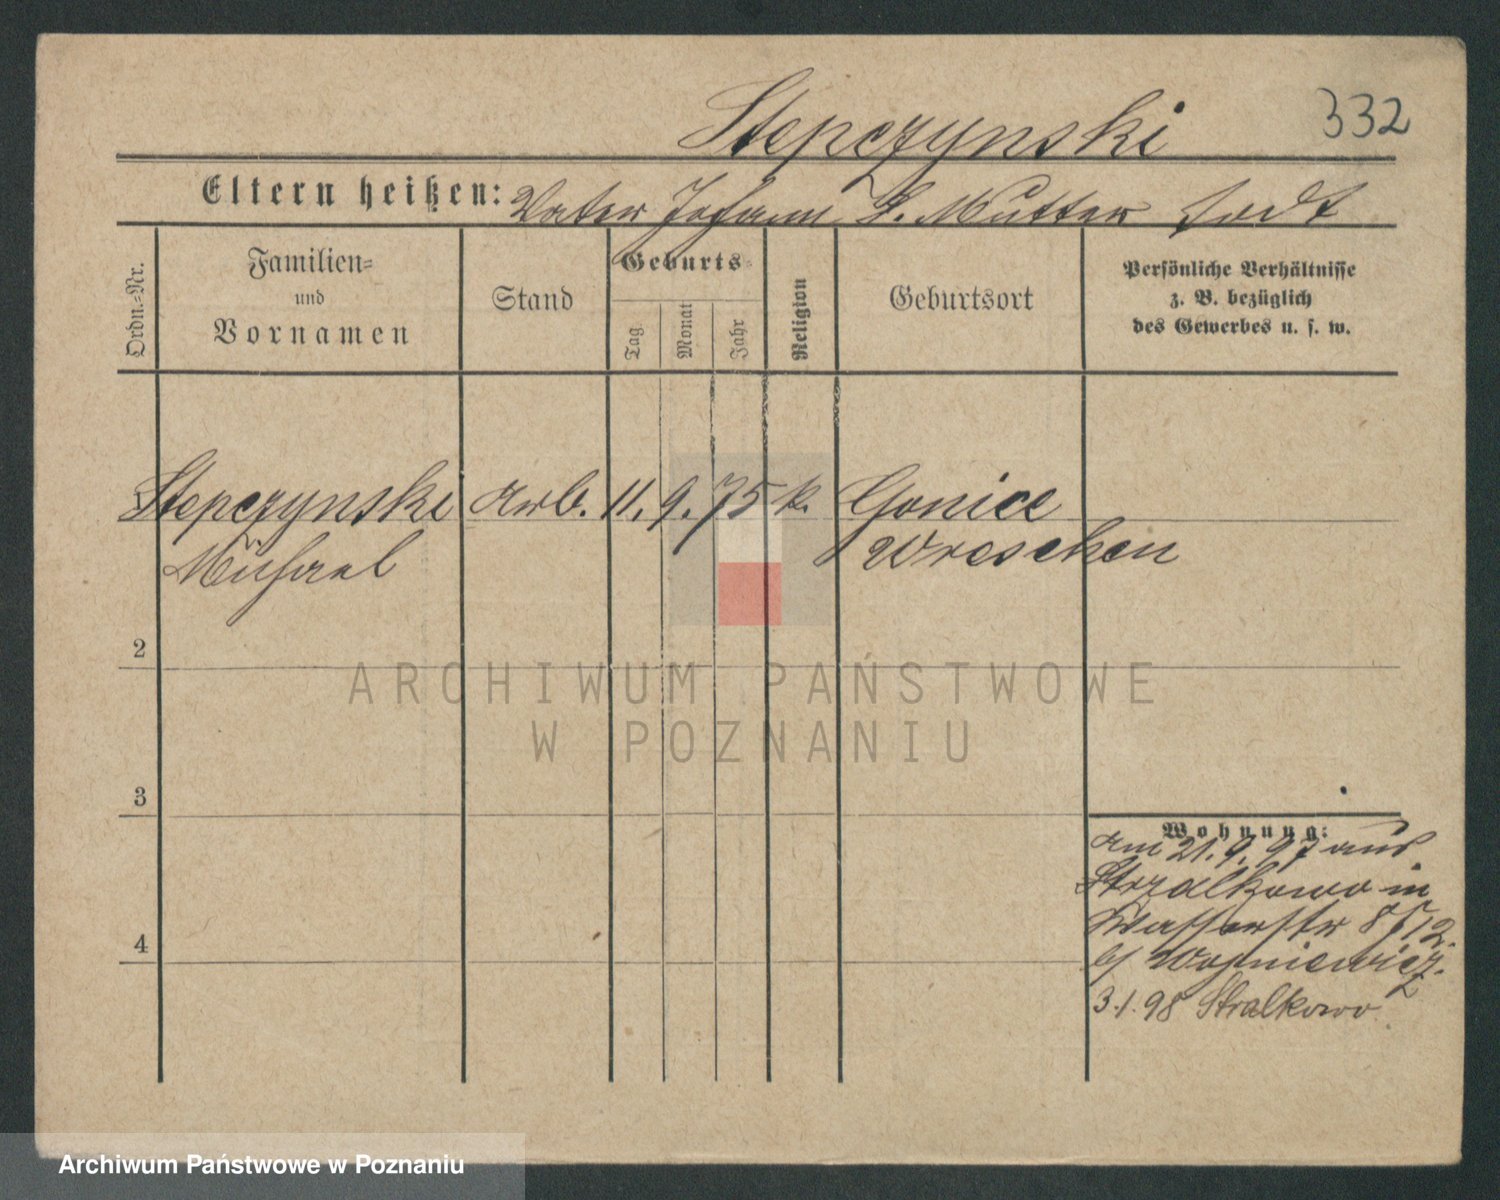 332
Stepczynski
Eltern heißen: Vater Johann S. Mutter todt
Ordn.-Nr.
Familien-
und
Vornamen
Stand
Geburts-
Tag
Monat
Jahr
Religion
Geburtsort
Persönliche Verhältnisse
z. B. bezüglich
des Gewerbes u. s. w.
1
Stepczynski Arb. 11. 9. 75 k. Gonice
Michael Wreschen
2
ARCHIWUM PAŃSTWOWE
W POZNANIU
3
Wohnung:
am 21. 9. 97 aus
Strzalkowo in
Wasserstr 8/12.
b/ Woyniewicz.
3.1.98 Stralkowo
4
Archiwum Państwowe w Poznaniu